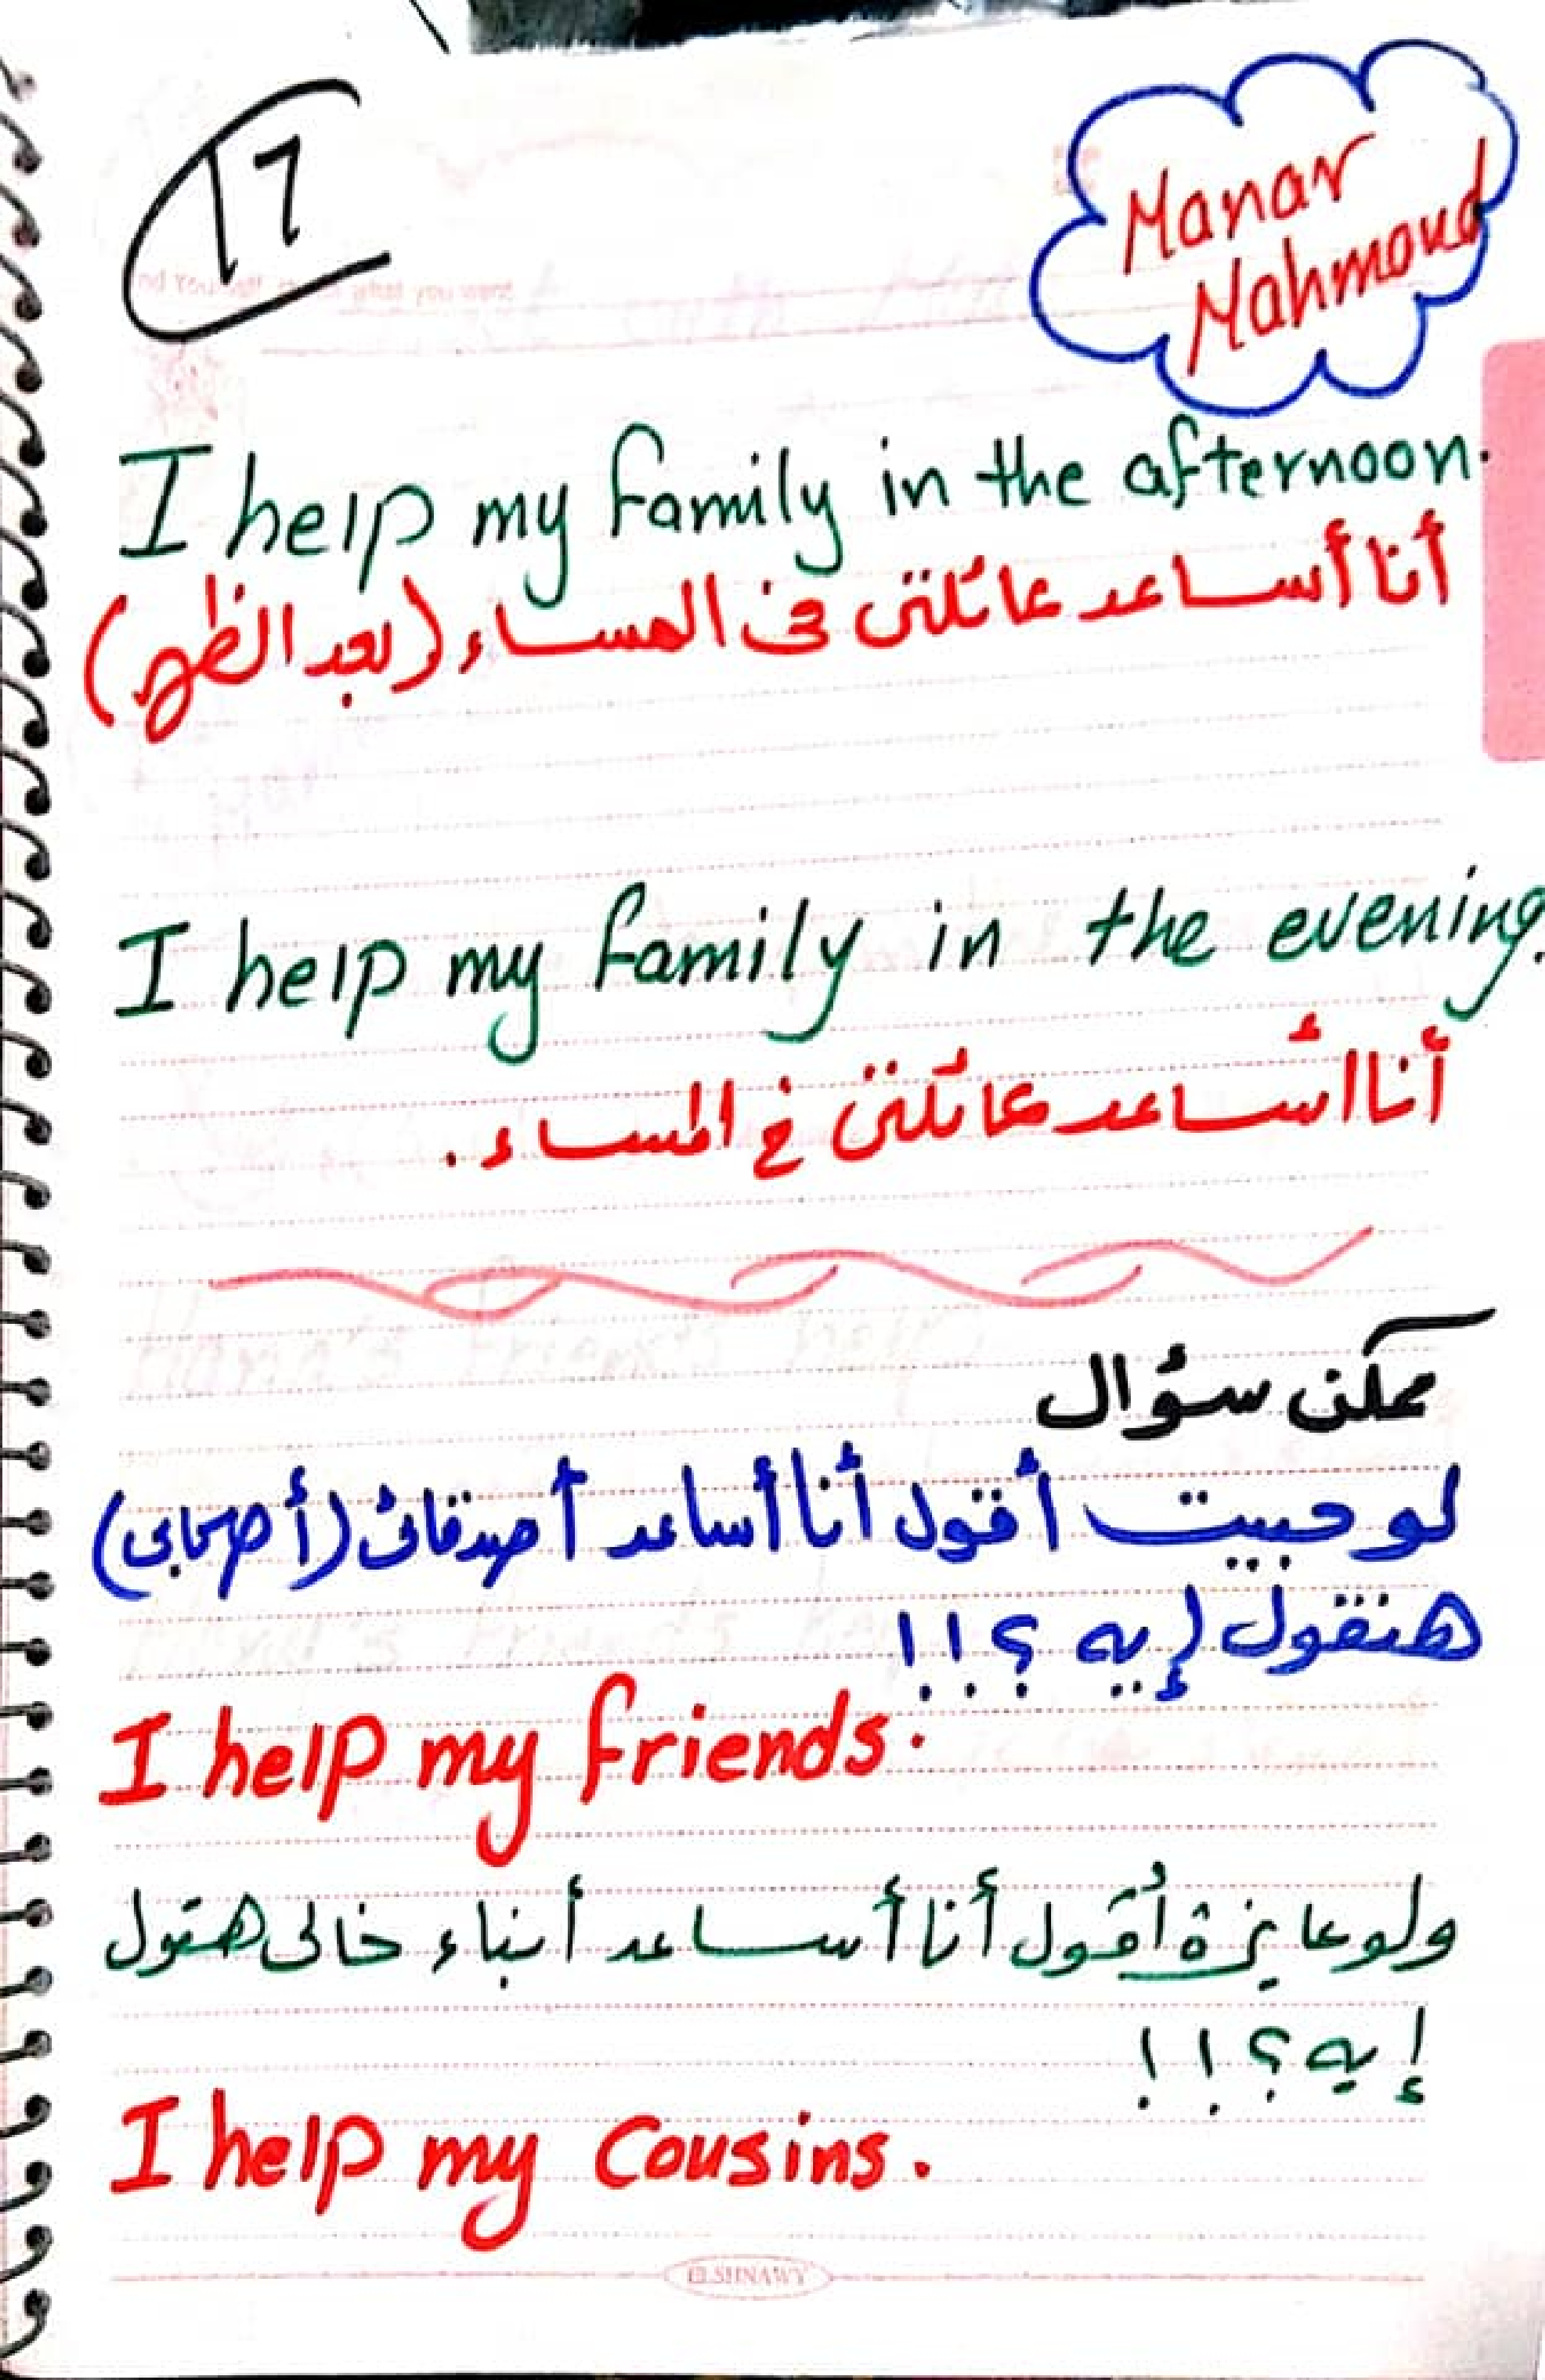 17
Manar
Mahmoud
I help my family in the afternoon.
أنا أساعد عائلتى فى المساء (بعد الظهر)
I help my family in the evening.
أنا أساعد عائلتى فى المساء .
ممكن سؤال
لو حبيت أقول أنا أساعد أصدقائى (أصحابى)
هنقول إيه ؟!!
I help my friends.
ولو عايزة أقول أنا أساعد أبناء خالى هتول
إيه ؟!!
I help my Cousins.
ELSHNAWY